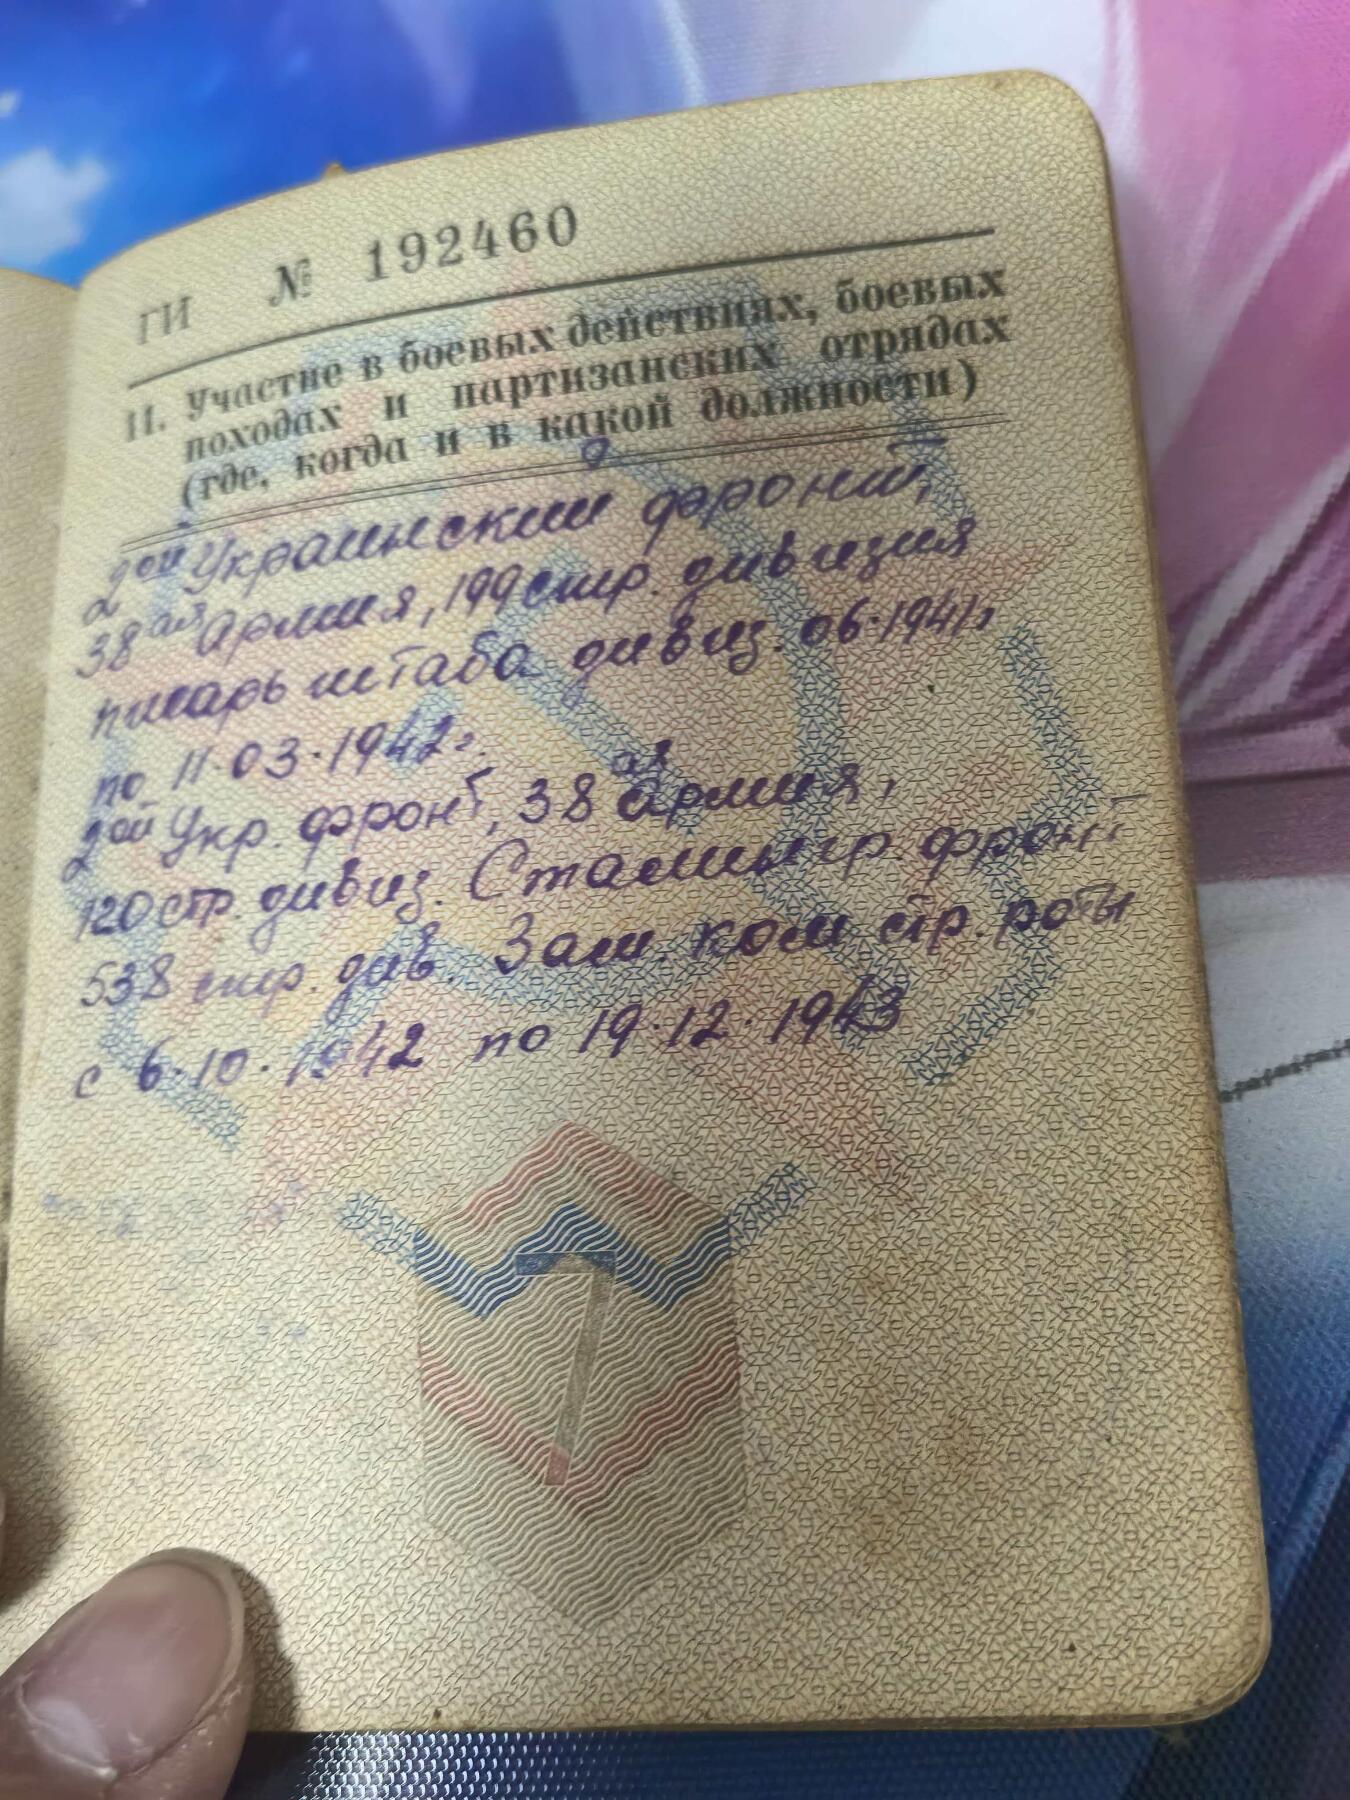 ГИ № 192460
11. Участие в боевых действиях, боевых
походах и партизанских отрядах
(где, когда и в какой должности)
2ой Украинский фронт,
38ая Армия, 199 стр. дивизия
писарь штаба дивиз. 06.1941г
по 11.03.1942г.
2ой Укр. фронт, 38ая армия,
120 стр. дивиз. Сталингр. фронт
538 стр. див. Зам. ком стр. роты
с 6.10.1942 по 19.12.1943